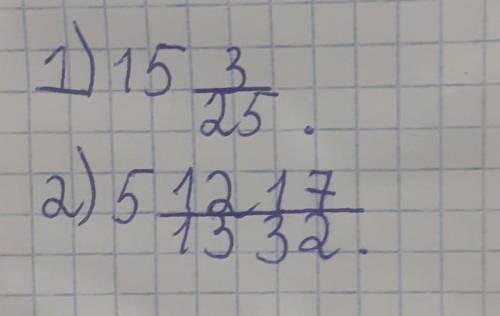 1) 15 3/25.
2) 5 12 17/13 32.